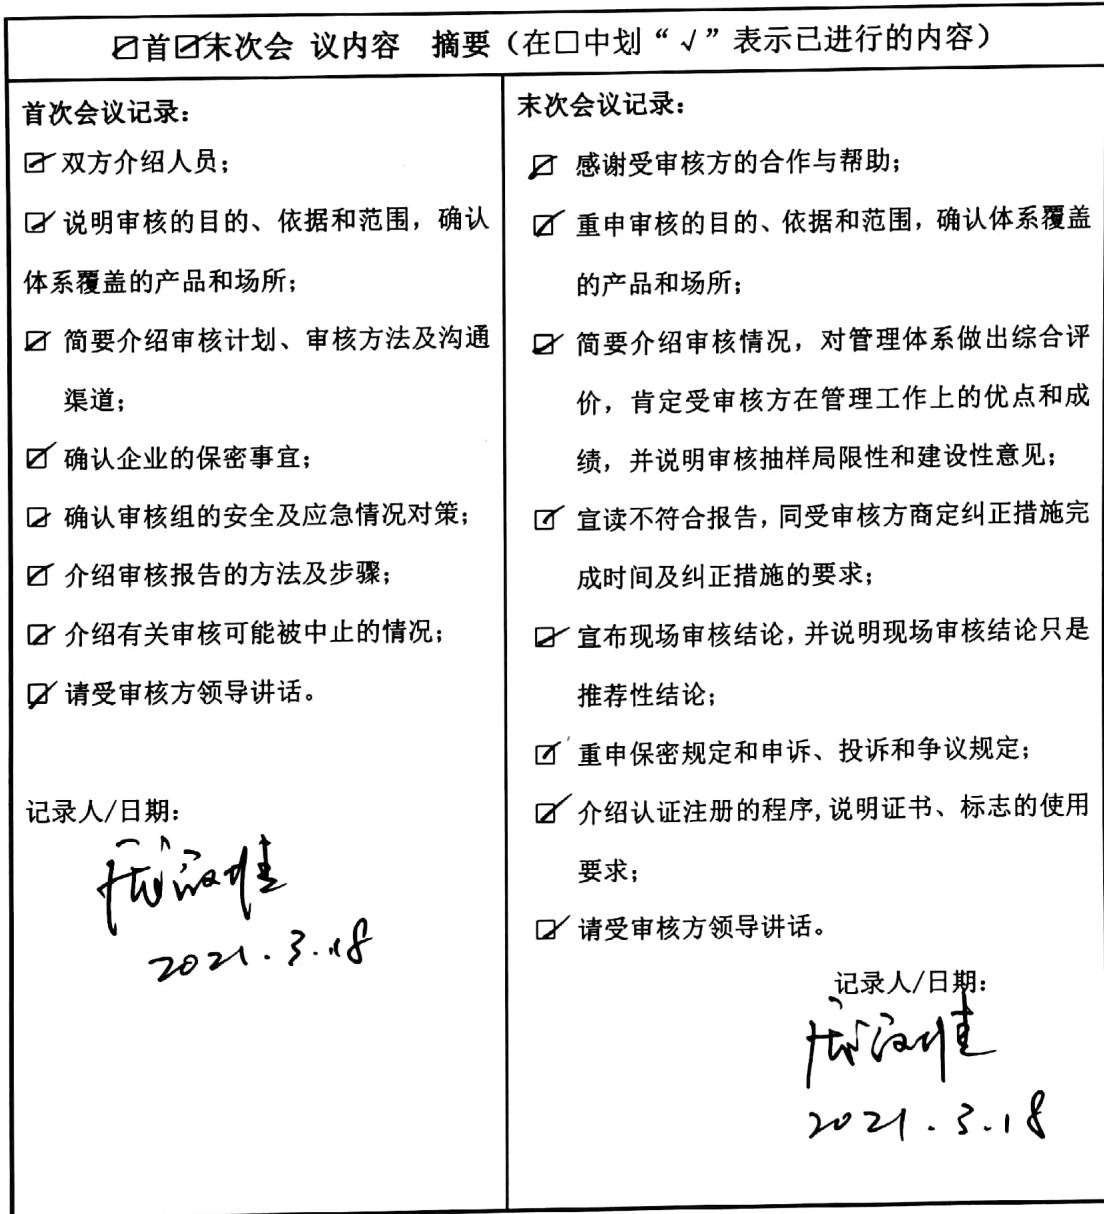 ☑首☑末次会 议内容 摘要（在□中划“√”表示已进行的内容）
首次会议记录：
☑ 双方介绍人员；
☑ 说明审核的目的、依据和范围，确认
体系覆盖的产品和场所；
☑ 简要介绍审核计划、审核方法及沟通
渠道；
☑ 确认企业的保密事宜；
☑ 确认审核组的安全及应急情况对策；
☑ 介绍审核报告的方法及步骤；
☑ 介绍有关审核可能被中止的情况；
☑ 请受审核方领导讲话。
记录人/日期：
2021.3.18
末次会议记录：
☑ 感谢受审核方的合作与帮助；
☑ 重申审核的目的、依据和范围，确认体系覆盖
的产品和场所；
☑ 简要介绍审核情况，对管理体系做出综合评
价，肯定受审核方在管理工作上的优点和成
绩，并说明审核抽样局限性和建设性意见；
☑ 宣读不符合报告，同受审核方商定纠正措施完
成时间及纠正措施的要求；
☑ 宣布现场审核结论，并说明现场审核结论只是
推荐性结论；
☑ 重申保密规定和申诉、投诉和争议规定；
☑ 介绍认证注册的程序,说明证书、标志的使用
要求；
☑ 请受审核方领导讲话。
记录人/日期：
2021.3.18